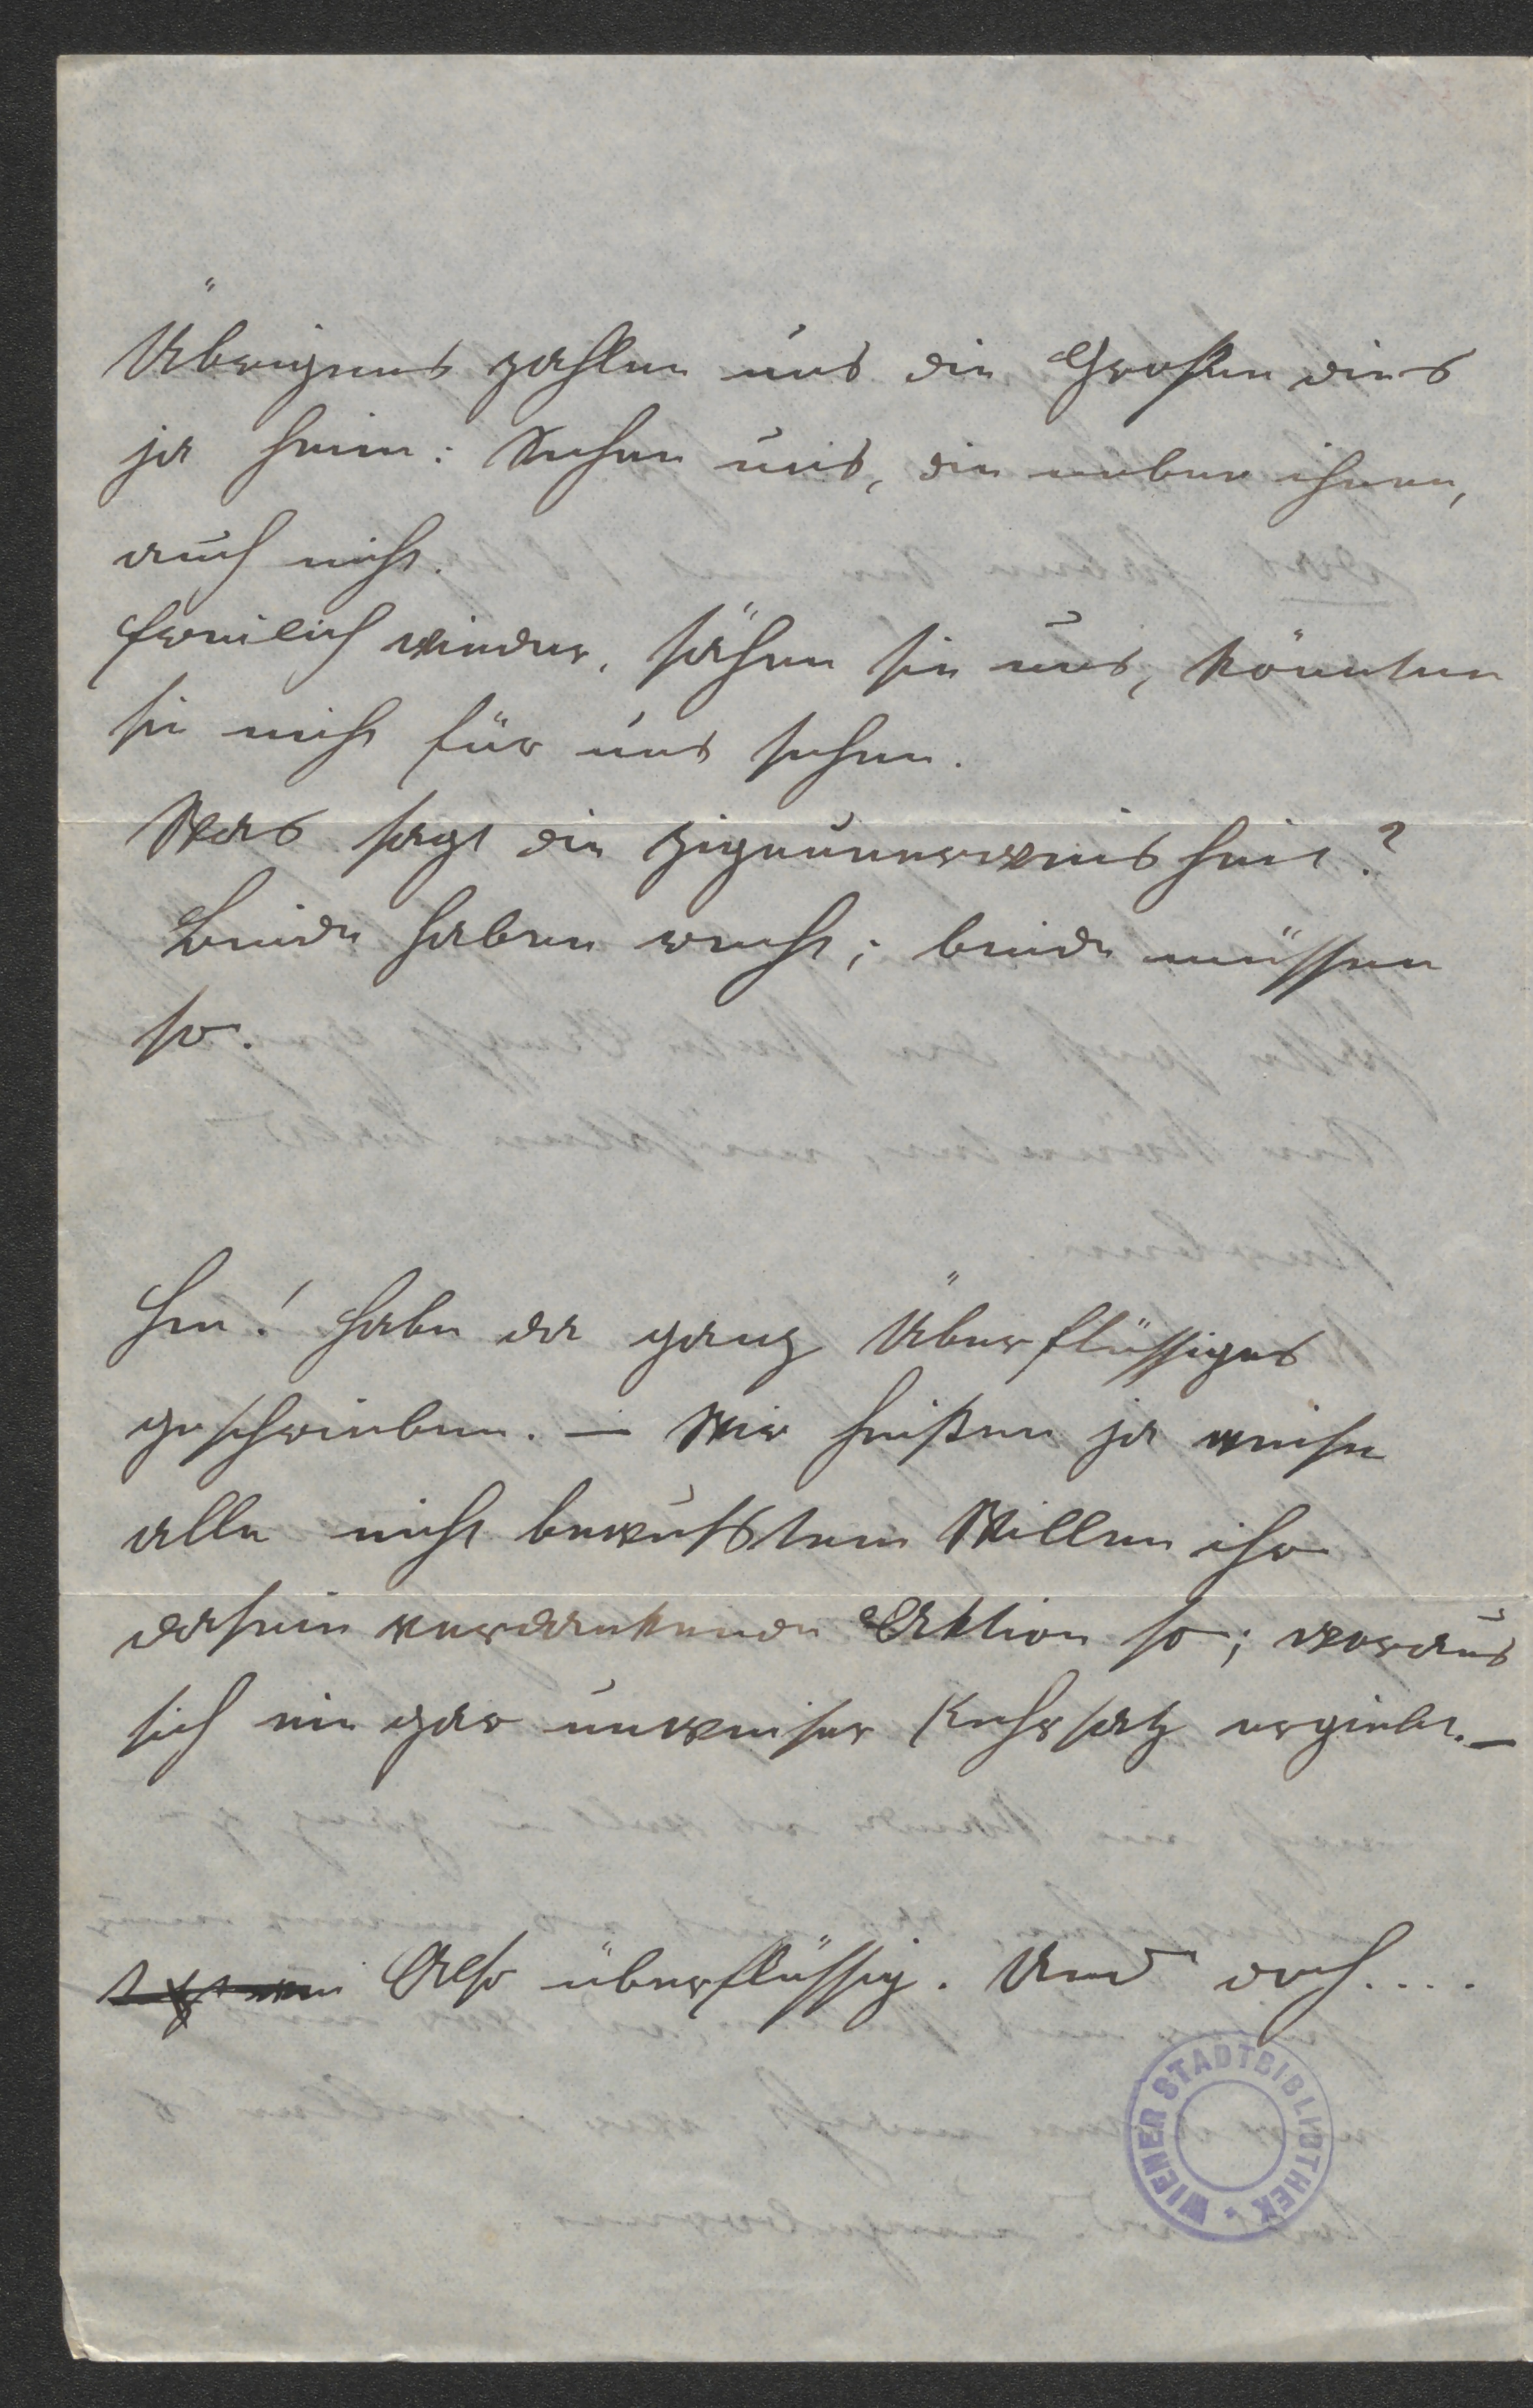 Übrigens zahlen uns die Großen dies
ja heim: Sehen uns, die neben ihnen,
auch nicht.
Freilich wieder, sähen sie uns, könnten
sie nicht für uns sehen.
Was sagt die Zigeunerweisheit?
Beide haben recht; beide müssen
so.
Hm! Habe da ganz Überflüssiges
geschrieben. – Wir heißen ja weise
alle nicht bewußtem Willen ihr
dasein verdankende Aktion so; woraus
sich ein gar unweiser Kehrsatz ergiebt. –
Also überflüssig. Und doch....
WIENER STADTBIBLIOTHEK